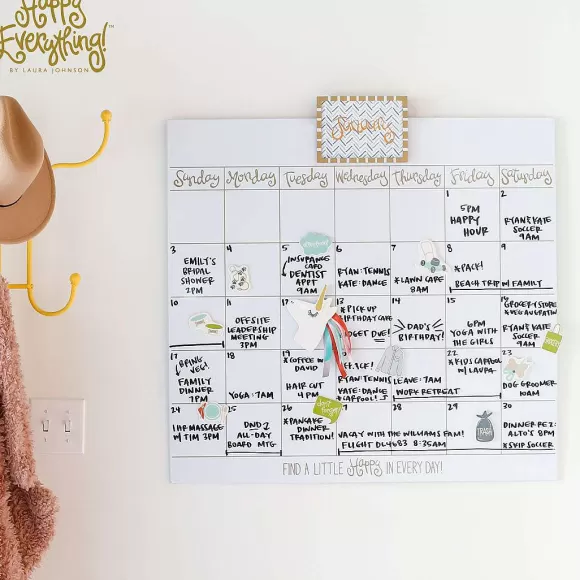 Happy
Everything!™
BY LAURA JOHNSON
January
Sunday Monday Tuesday Wednesday Thursday Friday Saturday
1
5PM
HAPPY
HOUR
2
RYAN & KATE
SOCCER
9AM
3
EMILY'S
BRIDAL
SHOWER
2PM
4
5
INSURANCE
CARD
DENTIST
APPT
9AM
6
RYAN: TENNIS
KATE: DANCE
7
*LAWN CARE
8AM
8
*PACK!
BEACH TRIP W/ FAMILY
9
10
11
OFFSITE
LEADERSHIP
MEETING
3PM
12
13
*PICK UP
BIRTHDAY CAKE
BUDGET DUE!
14
DAD'S
BIRTHDAY!
15
6PM
YOGA WITH
THE GIRLS
16
GROCERY STORE
*VEG AU GRATIN
RYAN & KATE
SOCCER
9AM
17
BRING
VEG!
FAMILY
DINNER
7PM
18
YOGA: 7AM
19
*COFFEE W/
DAVID
HAIR CUT
4 PM
RYAN: TENNIS
KATE: DANCE
*CARPOOL!
LEAVE: 7AM
WORK RETREAT
22
*KIDS CARPOOL
W/ LAURA
23
DOG GROOMER
10AM
24
1 HR MASSAGE
W/ TIM 3PM
25
DND
ALL-DAY
BOARD MTG.
26
*PANCAKE
DINNER
TRADITION!
28
29
VACAY WITH THE WILLIAMS FAM!
FLIGHT DL4683 8:35AM
TRASH
30
DINNER REZ:
ALTO'S 8PM
*SKIP SOCCER
FIND A LITTLE Happy IN EVERY DAY!